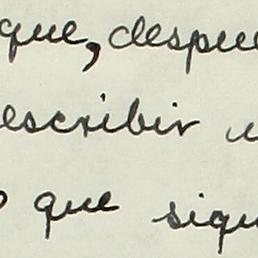 que, despue
escribir u
o que sigu